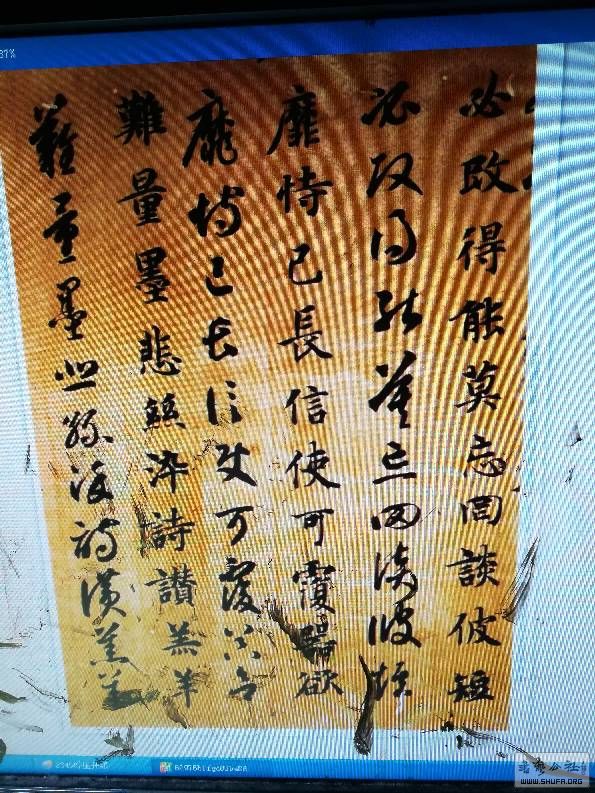 必改得能莫忘罔談彼短
必改得能莫忘罔談彼短
靡恃己長信使可覆器欲
靡恃己長信使可覆器欲
難量墨悲絲染詩讚羔羊
難量墨悲絲染詩讚羔羊
37%
WWW.SHUFA.ORG